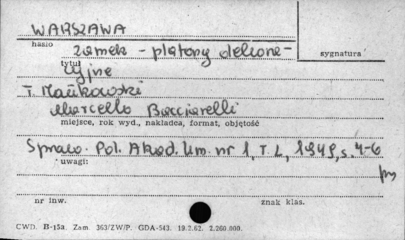 WARSZAWA
hasło
zamek - plafony dekora-
sygnatura
tytuł
cyjne
T. Mańkowski
Marcello Bacciarelli
miejsce, rok wyd., nakładca, format, objętość
Spraw. Pol. Akad. Um. nr 1, T. L, 1949, s. 4-6
uwagi:
nr inw.
znak klas.
CWD. B-15a. Zam 363/ZW/P. GDA-543. 19.2.62. 2.260.000.